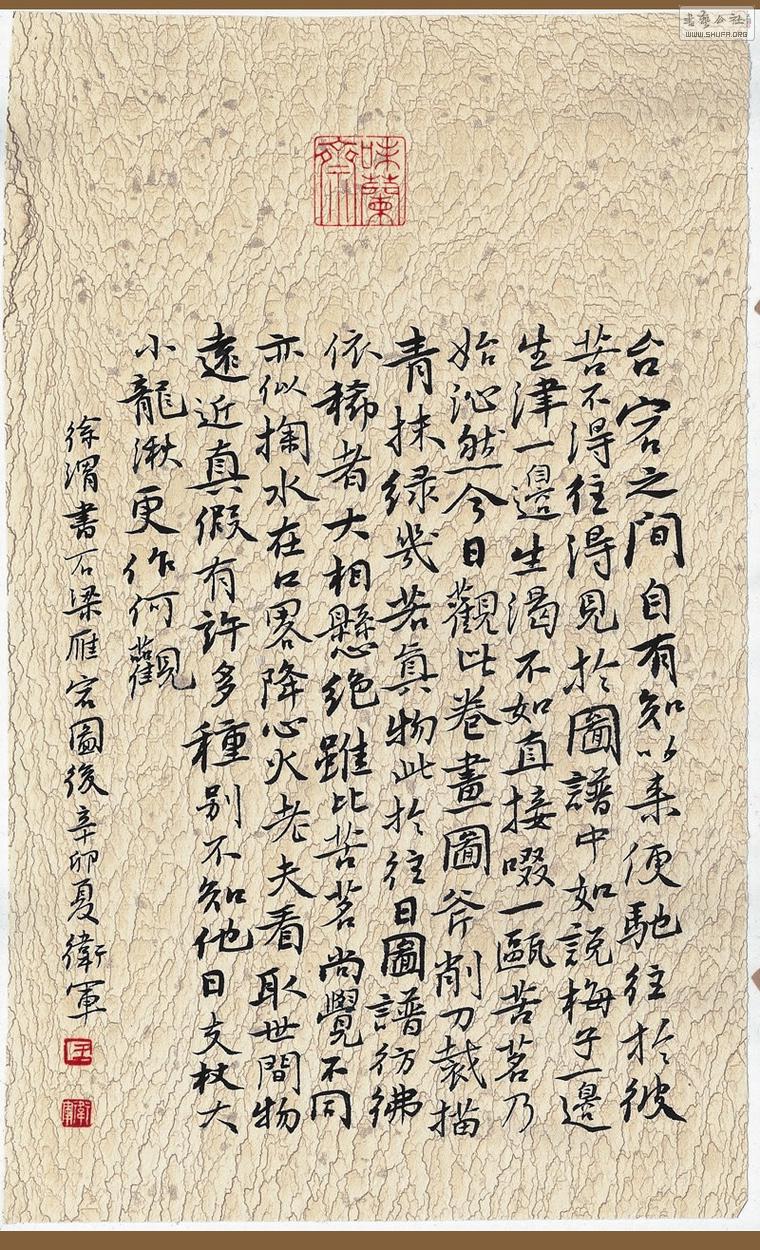 台宕之間自有知以来便馳往於彼
苦不得往得見於圖譜中如説梅子一邊
生津一邊生渴不如直接啜一甌苦茗乃
始沁然今日觀此卷畫圖斧削刀裁描
青抹绿幾若真物此於往日圖譜彷彿
依稀者大相懸絶雖比苦茗尚覺不同
亦似掬水在口畧降心火老夫看取世間物
遠近真假有許多種别不知他日支杖大
小龍湫更作何觀
徐渭書石梁雁宕圖後辛卯夏衛軍
味蘭齋
王
衛軍
書藝公社
WWW.SHUFA.ORG